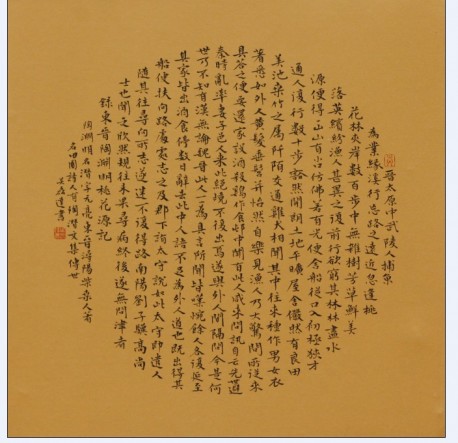 晉太原中武陵人捕魚
為業緣溪行忘路之遠近忽逢桃
花林夾岸數百步中無雜樹芳草鮮美
落英繽紛漁人甚異之復前行欲窮其林林盡水
源便得一山山有小口仿佛若有光便舍船從口入初極狹才
通人復行數十步豁然開朗土地平曠屋舍儼然有良田
美池桑竹之屬阡陌交通雞犬相聞其中往來種作男女衣
著悉如外人黃髮垂髫并怡然自樂見漁人乃大驚問所從來
具答之便要還家設酒殺雞作食村中聞有此人咸來問訊自云先世避
秦時亂率妻子邑人來此絕境不復出焉遂與外人間隔問今是何
世乃不知有漢無論魏晉此人一一為具言所聞皆嘆惋餘人各復延至
其家皆出酒食停數日辭去此中人語云不足為外人道也既出得其
船便扶向路處處志之及郡下詣太守說如此太守即遣人
隨其往尋向所志遂迷不復得路南陽劉子驥高尚
士也聞之欣然規往未果尋病終後遂無問津者
錄東晉陶淵明桃花源記
陶淵明名潛字元亮東晉潯陽柴桑人著
名田園詩人有陶潛文集傳世
書